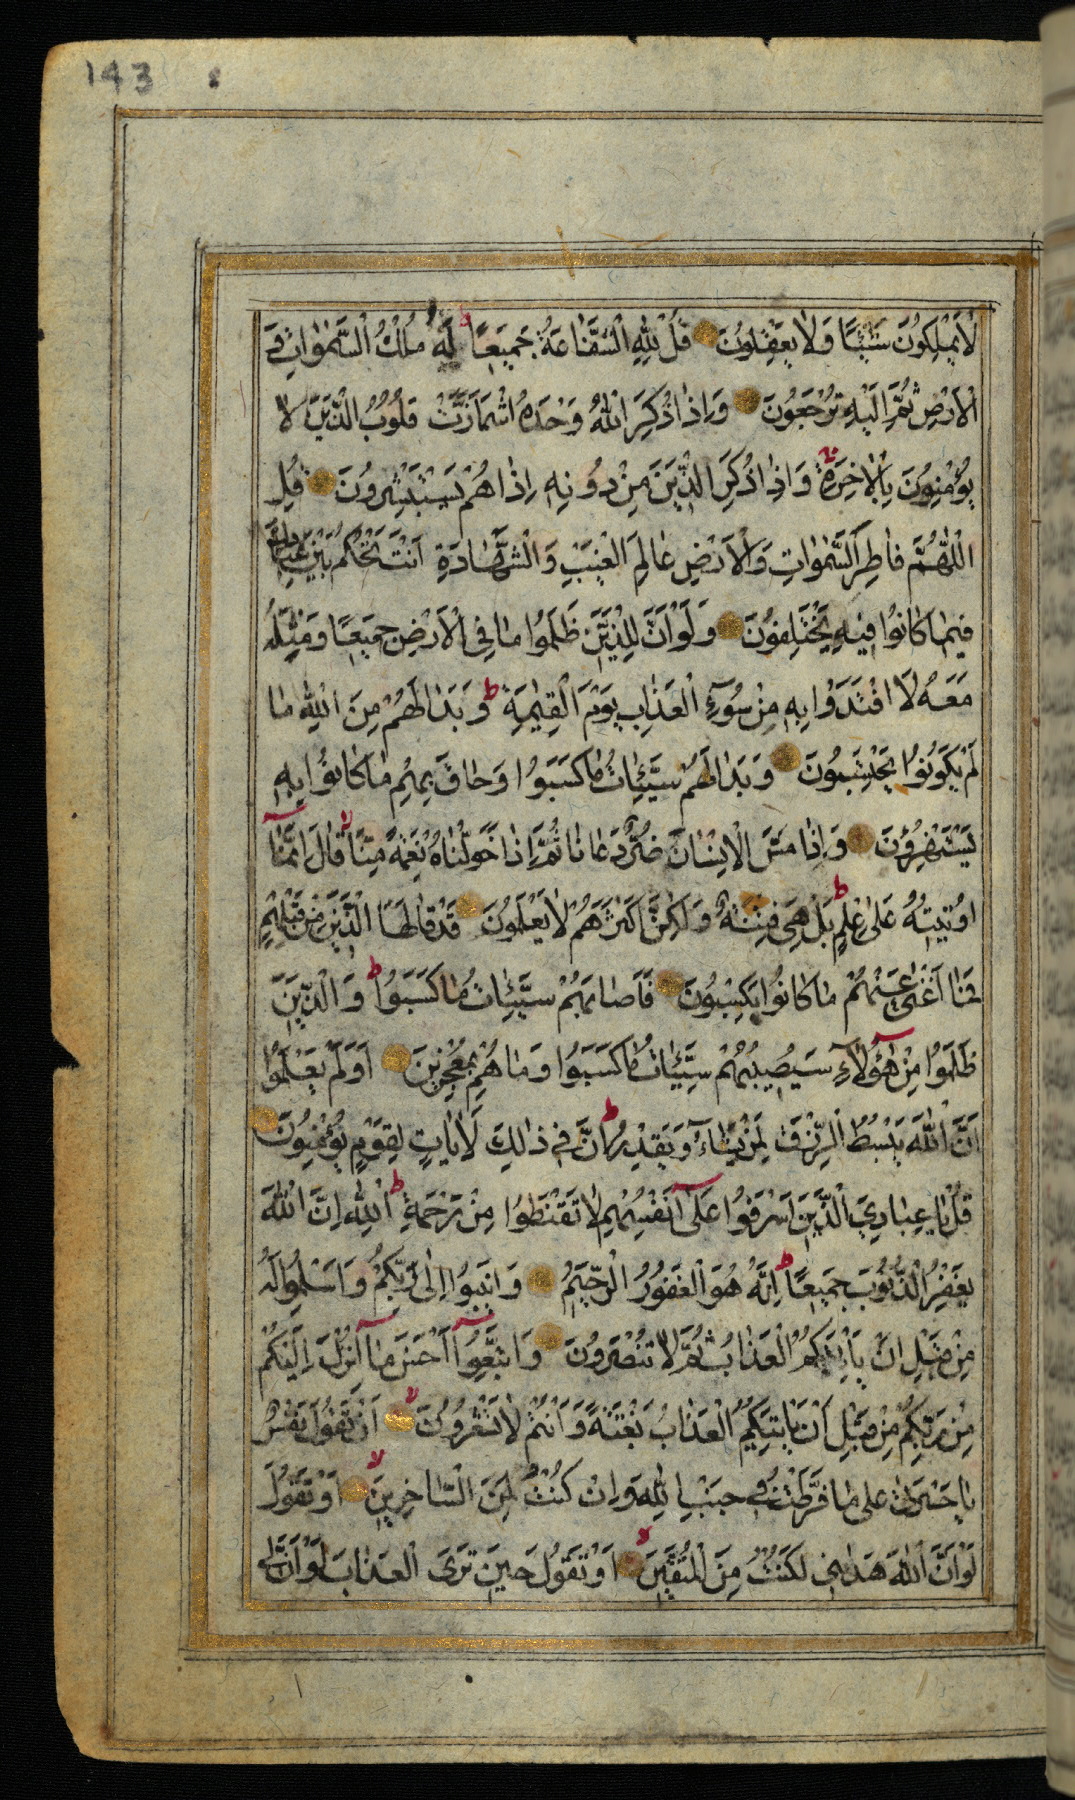 143
لَا يَمْلِكُونَ شَيْئًا وَلَا يَعْقِلُونَ قُلْ لِلَّهِ الشَّفَاعَةُ جَمِيعًا ط لَهُ مُلْكُ السَّمٰوَاتِ وَ
الْاَرْضِ ثُمَّ اِلَيْهِ تُرْجَعُونَ وَاِذَا ذُكِرَ اللّٰهُ وَحْدَهُ اشْمَاَزَّتْ قُلُوبُ الَّذِينَ لَا
يُؤْمِنُونَ بِالْاٰخِرَةِ وَاِذَا ذُكِرَ الَّذِينَ مِنْ دُونِهِ اِذَا هُمْ يَسْتَبْشِرُونَ قُلِ
اللّٰهُمَّ فَاطِرَ السَّمٰوَاتِ وَالْاَرْضِ عَالِمَ الْغَيْبِ وَالشَّهَادَةِ اَنْتَ تَحْكُمُ بَيْنَ عِبَادِكَ
فِيمَا كَانُوا فِيهِ يَخْتَلِفُونَ وَلَوْ اَنَّ لِلَّذِينَ ظَلَمُوا مَا فِي الْاَرْضِ جَمِيعًا وَمِثْلَهُ
مَعَهُ لَا افْتَدَوْا بِهِ مِنْ سُوۤءِ الْعَذَابِ يَوْمَ الْقِيٰمَةِ ط وَبَدَا لَهُمْ مِنَ اللّٰهِ مَا
لَمْ يَكُونُوا يَحْتَسِبُونَ وَبَدَا لَهُمْ سَيِّئَاتُ مَا كَسَبُوا وَحَاقَ بِهِمْ مَا كَانُوا بِهِ
يَسْتَهْزِؤُنَ وَاِذَا مَسَّ الْاِنْسَانَ ضُرٌّ دَعَانَا ثُمَّ اِذَا خَوَّلْنَاهُ نِعْمَةً مِنَّا لا قَالَ اِنَّمَا
اُوتِيتُهُ عَلٰى عِلْمٍ ط بَلْ هِيَ فِتْنَةٌ وَلٰكِنَّ اَكْثَرَهُمْ لَا يَعْلَمُونَ قَدْ قَالَهَا الَّذِينَ مِنْ قَبْلِهِمْ
فَمَا اَغْنٰى عَنْهُمْ مَا كَانُوا يَكْسِبُونَ فَاَصَابَهُمْ سَيِّئَاتُ مَا كَسَبُوا ط وَالَّذِينَ
ظَلَمُوا مِنْ هٰۤؤُلَاۤءِ سَيُصِيبُهُمْ سَيِّئَاتُ مَا كَسَبُوا وَمَا هُمْ بِمُعْجِزِينَ اَوَلَمْ يَعْلَمُوا
اَنَّ اللّٰهَ يَبْسُطُ الرِّزْقَ لِمَنْ يَشَاۤءُ وَيَقْدِرُ ط اِنَّ فِي ذٰلِكَ لَاٰيَاتٍ لِقَوْمٍ يُؤْمِنُونَ
قُلْ يَا عِبَادِيَ الَّذِينَ اَسْرَفُوا عَلٰۤى اَنْفُسِهِمْ لَا تَقْنَطُوا مِنْ رَحْمَةِ ط اللّٰهِ اِنَّ اللّٰهَ
يَغْفِرُ الذُّنُوبَ جَمِيعًا ط اِنَّهُ هُوَ الْغَفُورُ الرَّحِيمُ وَاَنِيبُوا اِلٰى رَبِّكُمْ وَاَسْلِمُوا لَهُ
مِنْ قَبْلِ اَنْ يَاْتِيَكُمُ الْعَذَابُ ثُمَّ لَا تُنْصَرُونَ وَاتَّبِعُوۤا اَحْسَنَ مَاۤ اُنْزِلَ اِلَيْكُمْ
مِنْ رَبِّكُمْ مِنْ قَبْلِ اَنْ يَاْتِيَكُمُ الْعَذَابُ بَغْتَةً وَاَنْتُمْ لَا تَشْعُرُونَ لا اَنْ تَقُولَ نَفْسٌ
يَا حَسْرَتٰى عَلٰى مَا فَرَّطْتُ فِي جَنْبِ اللّٰهِ وَاِنْ كُنْتُ لَمِنَ السَّاخِرِينَ لا اَوْ تَقُولَ
لَوْ اَنَّ اللّٰهَ هَدٰينِي لَكُنْتُ مِنَ الْمُتَّقِينَ لا اَوْ تَقُولَ حِينَ تَرَى الْعَذَابَ لَوْ اَنَّ لِي